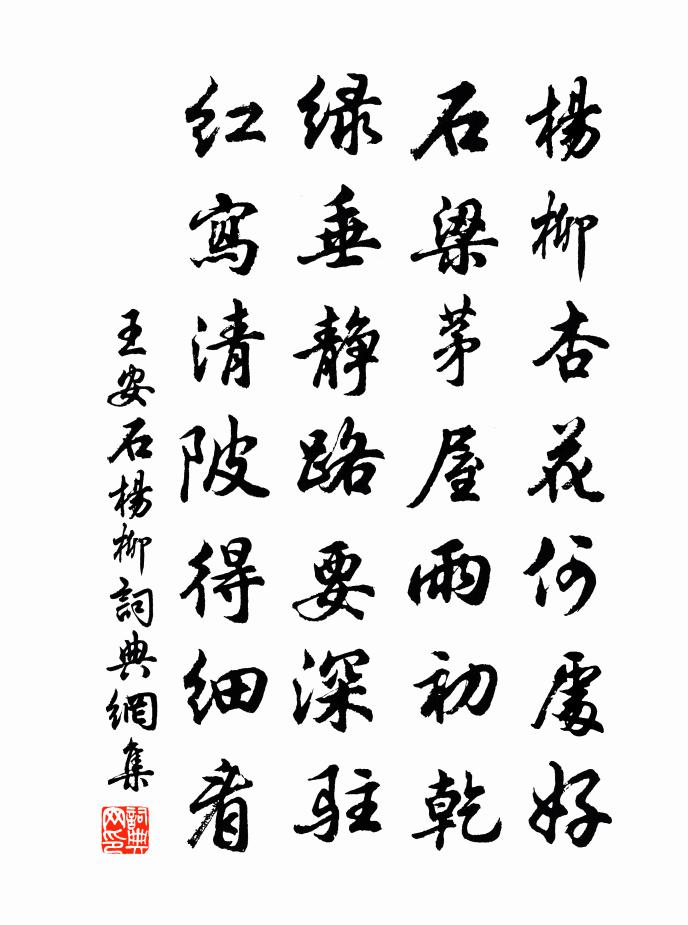 楊柳杏花何處好
石梁茅屋雨初乾
綠垂靜路要深駐
紅寫清陂得細看
王安石楊柳詞典網集
詞典網印